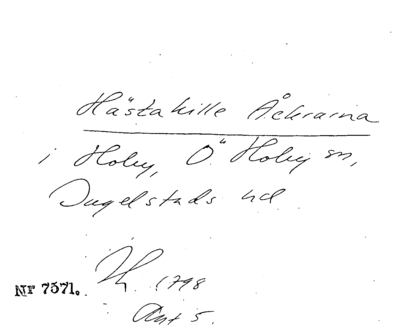 Hästakille Åkrarna
i Hoby, Ö Hoby sn,
Ingelstads hd
H. 1798
Akt 5.
Nr 7571.